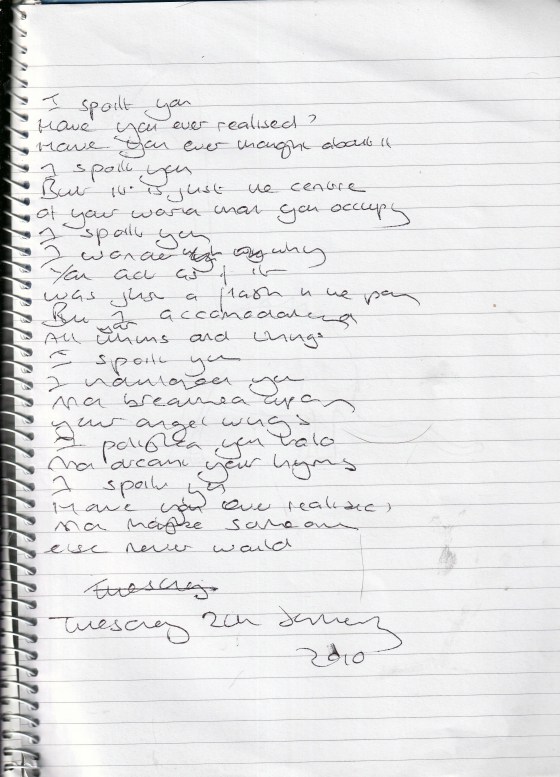 I spoilt you
Have you ever realised?
Have you ever thought about it
I spoilt you
But it is just the centre
of your world that you occupy
I spoilt you
I wonder why
You act as if it
was just a flash in the pan
But I accomodated
All your whims and things
I spoilt you
I indulged you
And breathed upon
your angel wings
I polished your halo
And dreamt your hymns
I spoilt you
Have you ever realised?
And maybe someone
else never would
Tuesday
Tuesday January
2010